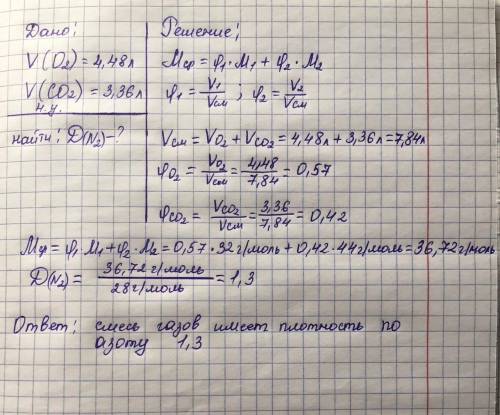 Дано:
V(O₂) = 4,48л
V(CO₂) = 3,36л
н.у.
найти: D(N₂)-?
Решение:
Mср = φ₁·M₁ + φ₂·M₂
φ₁ = V₁/Vсм ; φ₂ = V₂/Vсм
Vсм = VO₂ + VCO₂ = 4,48л + 3,36л = 7,84л
φO₂ = VO₂/Vсм = 4,48/7,84 = 0,57
φCO₂ = VCO₂/Vсм = 3,36/7,84 = 0,42
Mср = φ₁·M₁ + φ₂·M₂ = 0,57·32г/моль + 0,42·44г/моль = 36,72г/моль
D(N₂) = 36,72г/моль / 28г/моль = 1,3
Ответ: смесь газов имеет плотность по
азоту 1,3